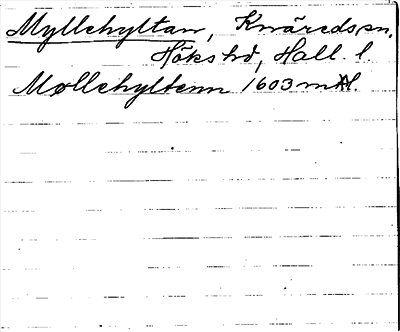 Myllehyltan, Knäreds sn,
Höks hd, Hall. l.
Møllehyltenn 1603